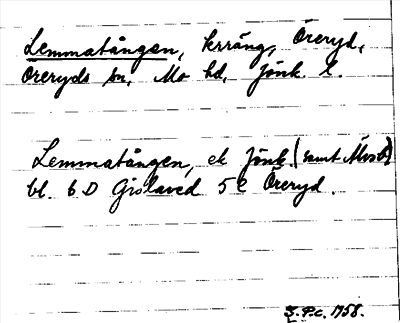 Lemmatången, kärräng, Öreryd,
Öreryds sn, Mo hd, Jönk. l.
Lemmatången, ek Jönk. (samt Älvsb)
bl. 6 D Gislaved 5 e Öreryd.
S.P.C. 1958.